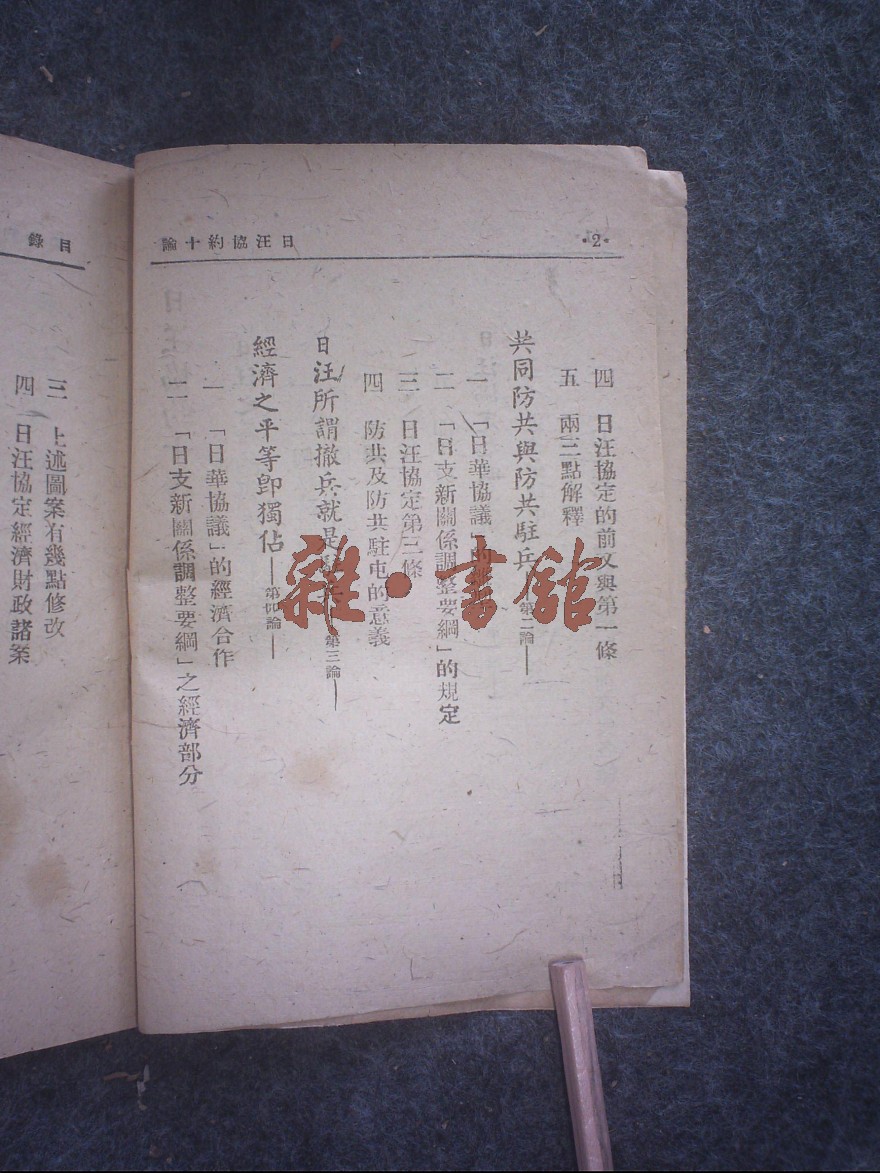 ·2·
日汪協約十論
四 日汪協定的前文與第一條
五 兩三點解釋
共同防共與防共駐兵——第二論——
一 「日華協議」的
二 「日支新關係調整要綱」的規定
三 日汪協定第三條
四 防共及防共駐屯的意義
日汪所謂撤兵就是 第三論——
經濟之平等卽獨佔——第四論——
一 「日華協議」的經濟合作
二 「日支新關係調整要綱」之經濟部分
目錄
三 上述圖案有幾點修改
四 日汪協定經濟財政諸案
雜·書館